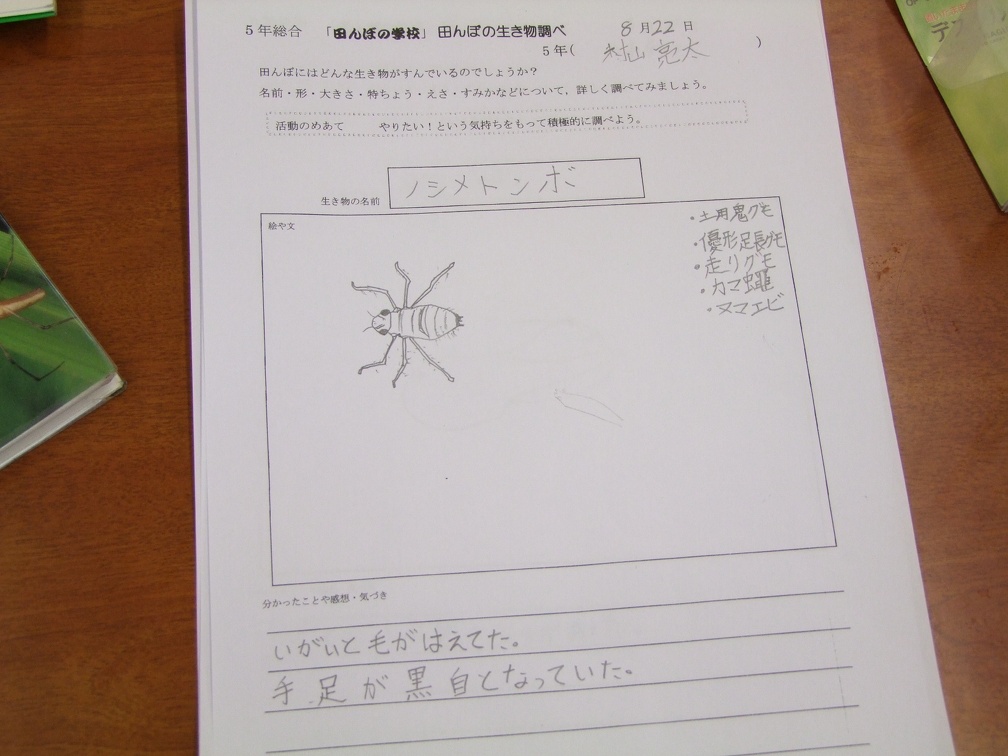 5年総合 「田んぼの学校」田んぼの生き物調べ 8月22日
5年( 村山 亮太 )
田んぼにはどんな生き物がすんでいるのでしょうか?
名前・形・大きさ・特ちょう・えさ・すみかなどについて,詳しく調べてみましょう。
活動のめあて やりたい!という気持ちをもって積極的に調べよう。
生き物の名前 ノシメトンボ
絵や文
・土用鬼グモ
・優形足長グモ
・走リグモ
・カマ蠅
・ヌマエビ
分かったことや感想・気づき
いがいと毛がはえてた。
手足が黒自となっていた。